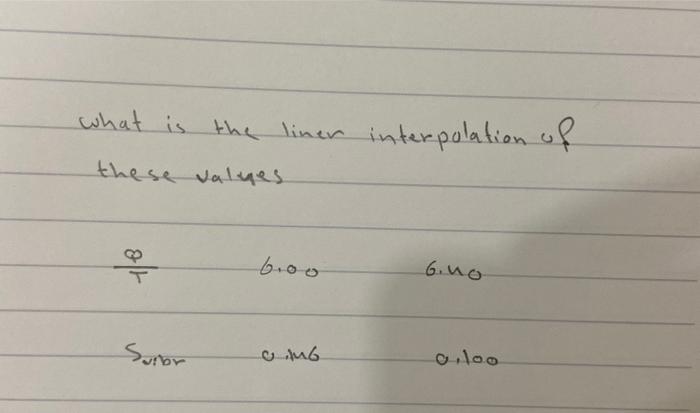 what is the liner interpolation of
these values
φ/T 6.00 6.40
Svibr 0.146 0.100